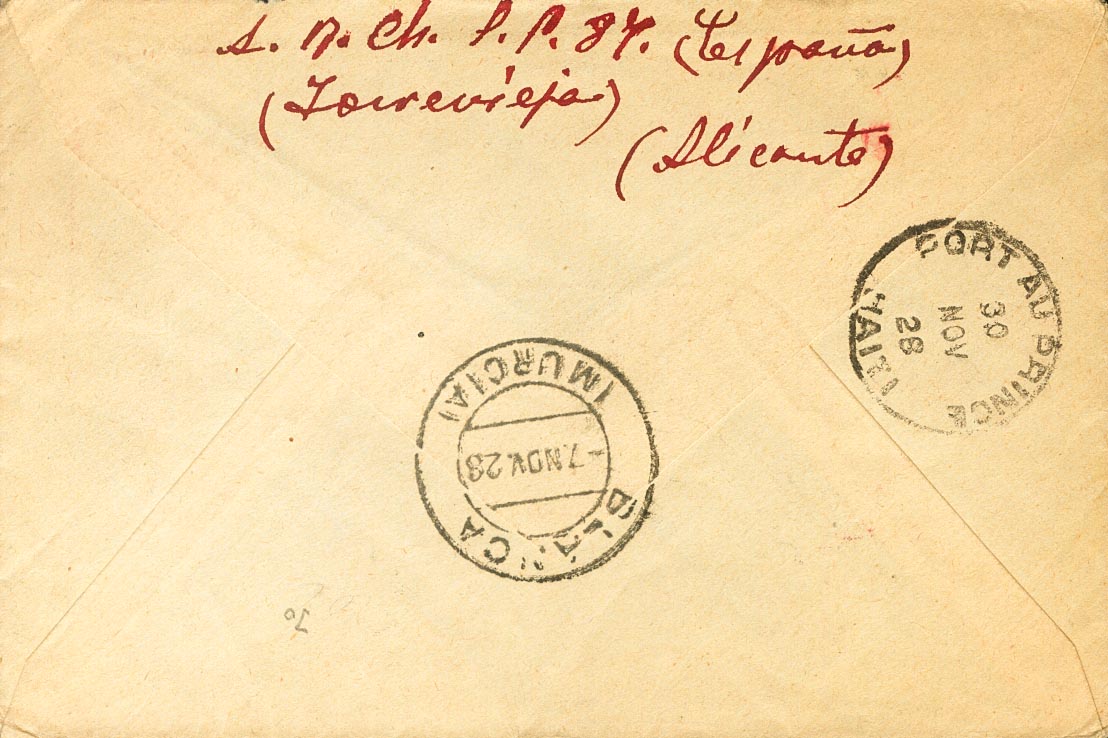 A. R. Ch. S. P. 87. (España)
(Torrevieja)
(Alicante)
PORT AU PRINCE
HAITI
30
NOV
28
BLANCA
-7.NOV.28
(MURCIA)